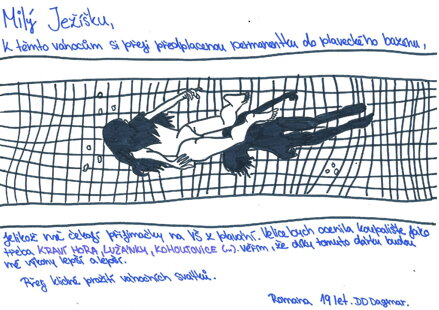 Milý Ježíšku,
K těmto vánocům si přeji předplacenou permanentku do plaveckého bazénu,
jelikož mě čekají přijímačky na VŠ z plavání. Velice bych ocenila koupaliště jako
třeba KRAVÍ HORA, LUŽÁNKY, KOHOUTOVICE (...). Věřím, že díky tomuto dárku budou
mé výkony lepší a lepší.
Přeji klidné prožití vánočních svátků.
Romana 19 let. DD Dagmar.